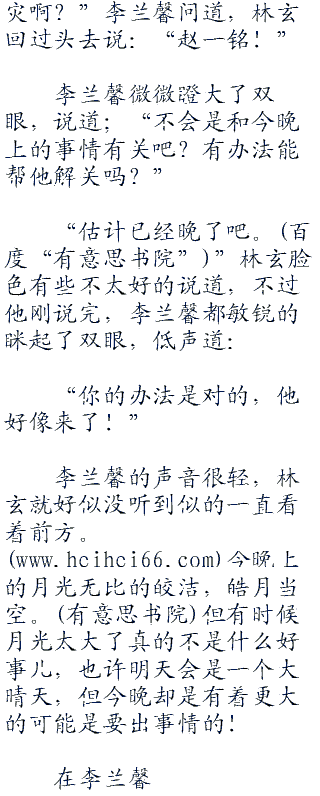 灾啊？” 李兰馨问道，林玄
回过头去说：“赵一铭！”
李兰馨微微瞪大了双
眼，说道；“不会是和今晚
上的事情有关吧？有办法能
帮他解关吗？”
“估计已经晚了吧。(百
度“有意思书院”)”林玄脸
色有些不太好的说道，不过
他刚说完，李兰馨都敏锐的
眯起了双眼，低声道：
“你的办法是对的，他
好像来了！”
李兰馨的声音很轻，林
玄就好似没听到似的一直看
着前方。
(www.hcihci66.com)今晚上
的月光无比的皎洁，皓月当
空。(有意思书院)但有时候
月光太大了真的不是什么好
事儿，也许明天会是一个大
晴天，但今晚却是有着更大
的可能是要出事情的！
在李兰馨